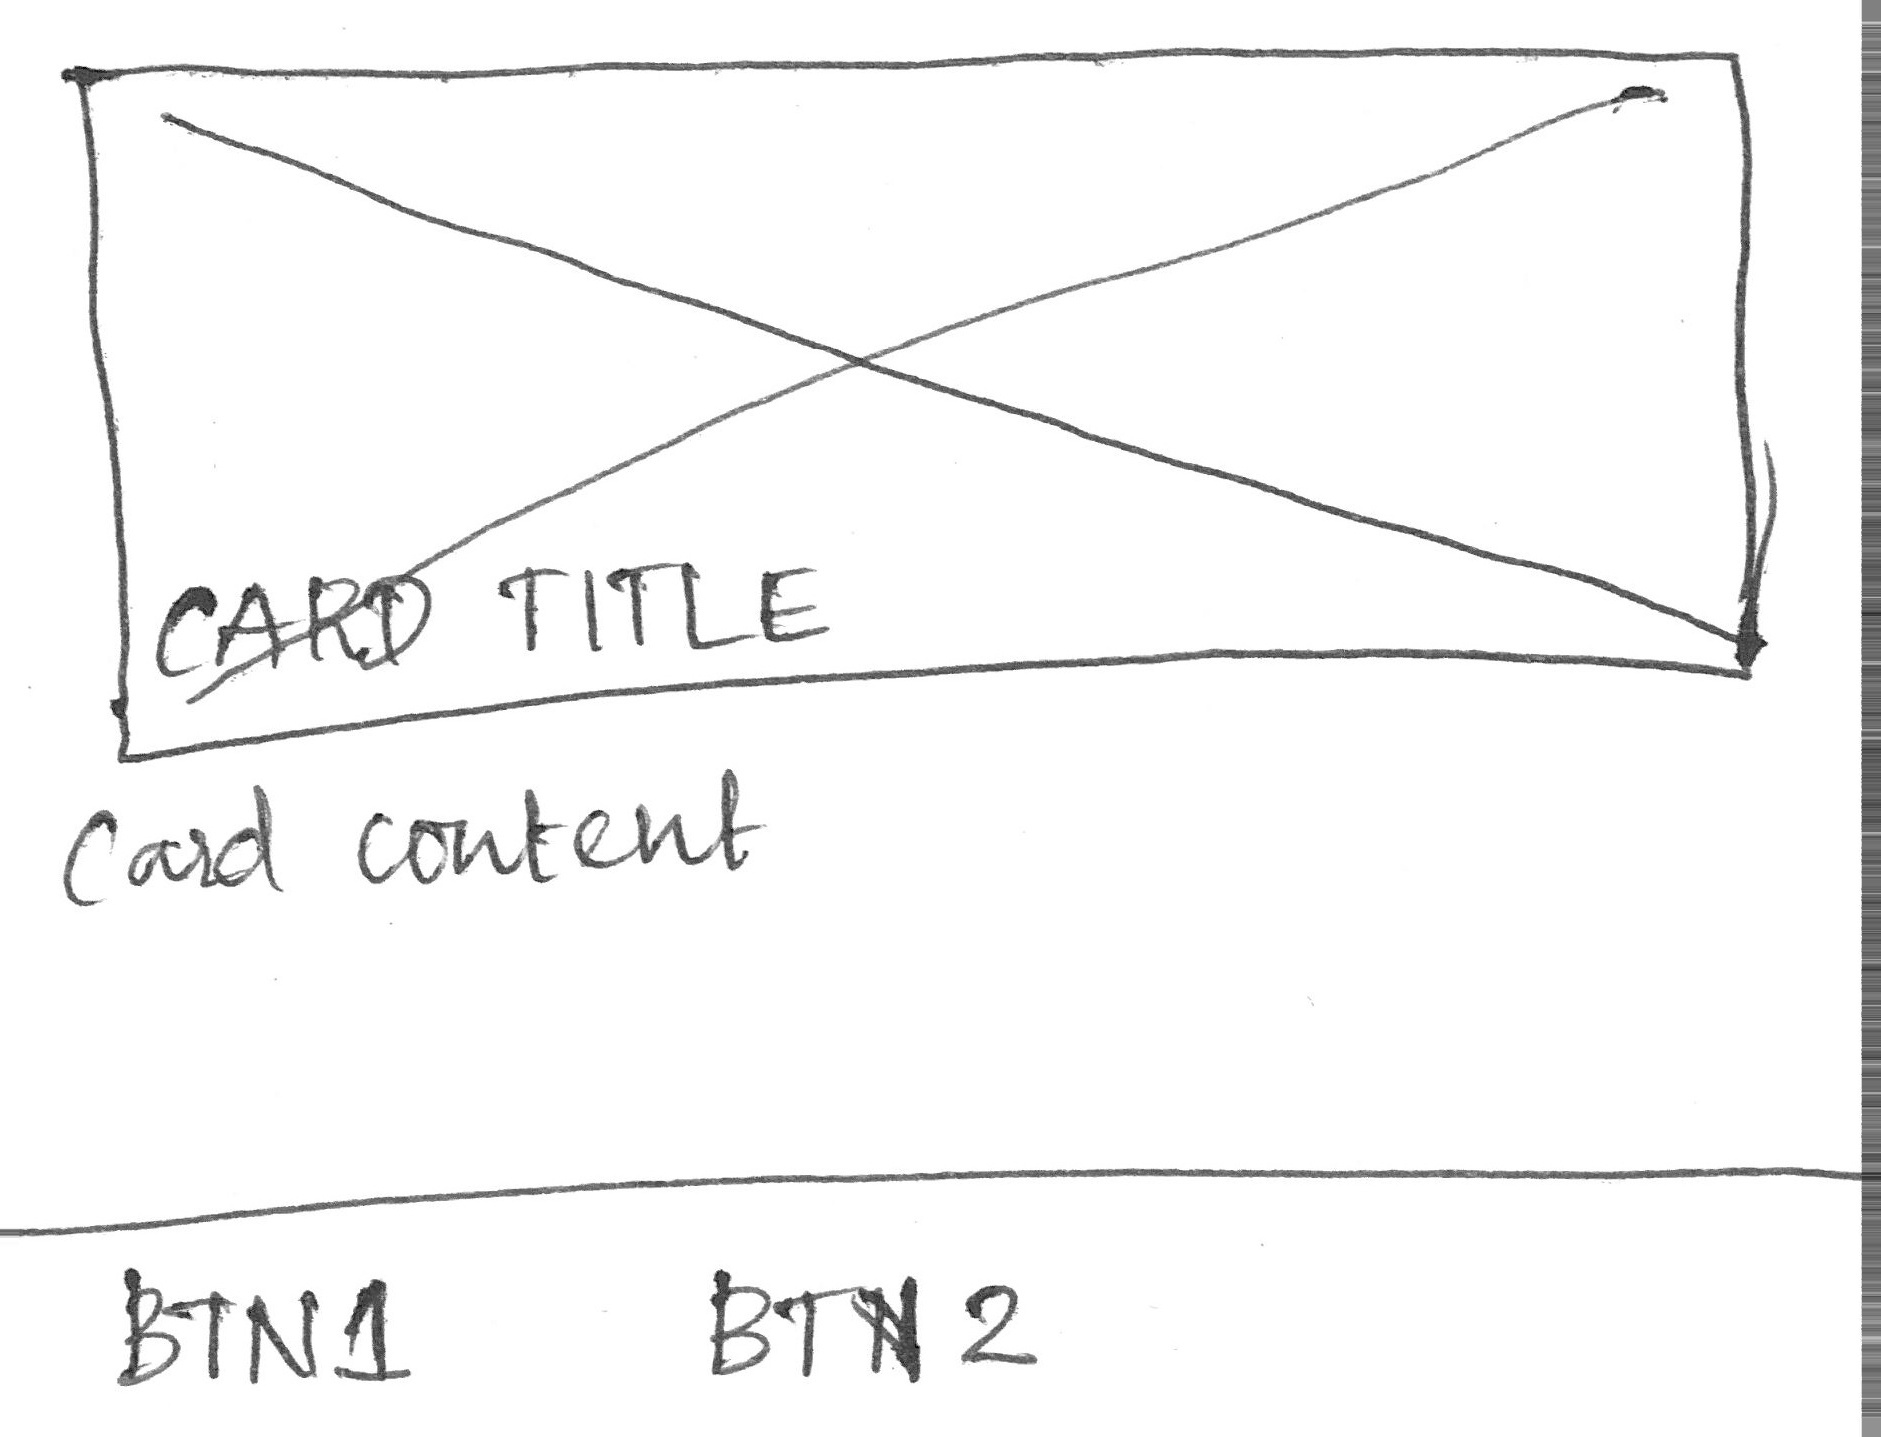 CARD TITLE
Card content
BTN1 BTN 2